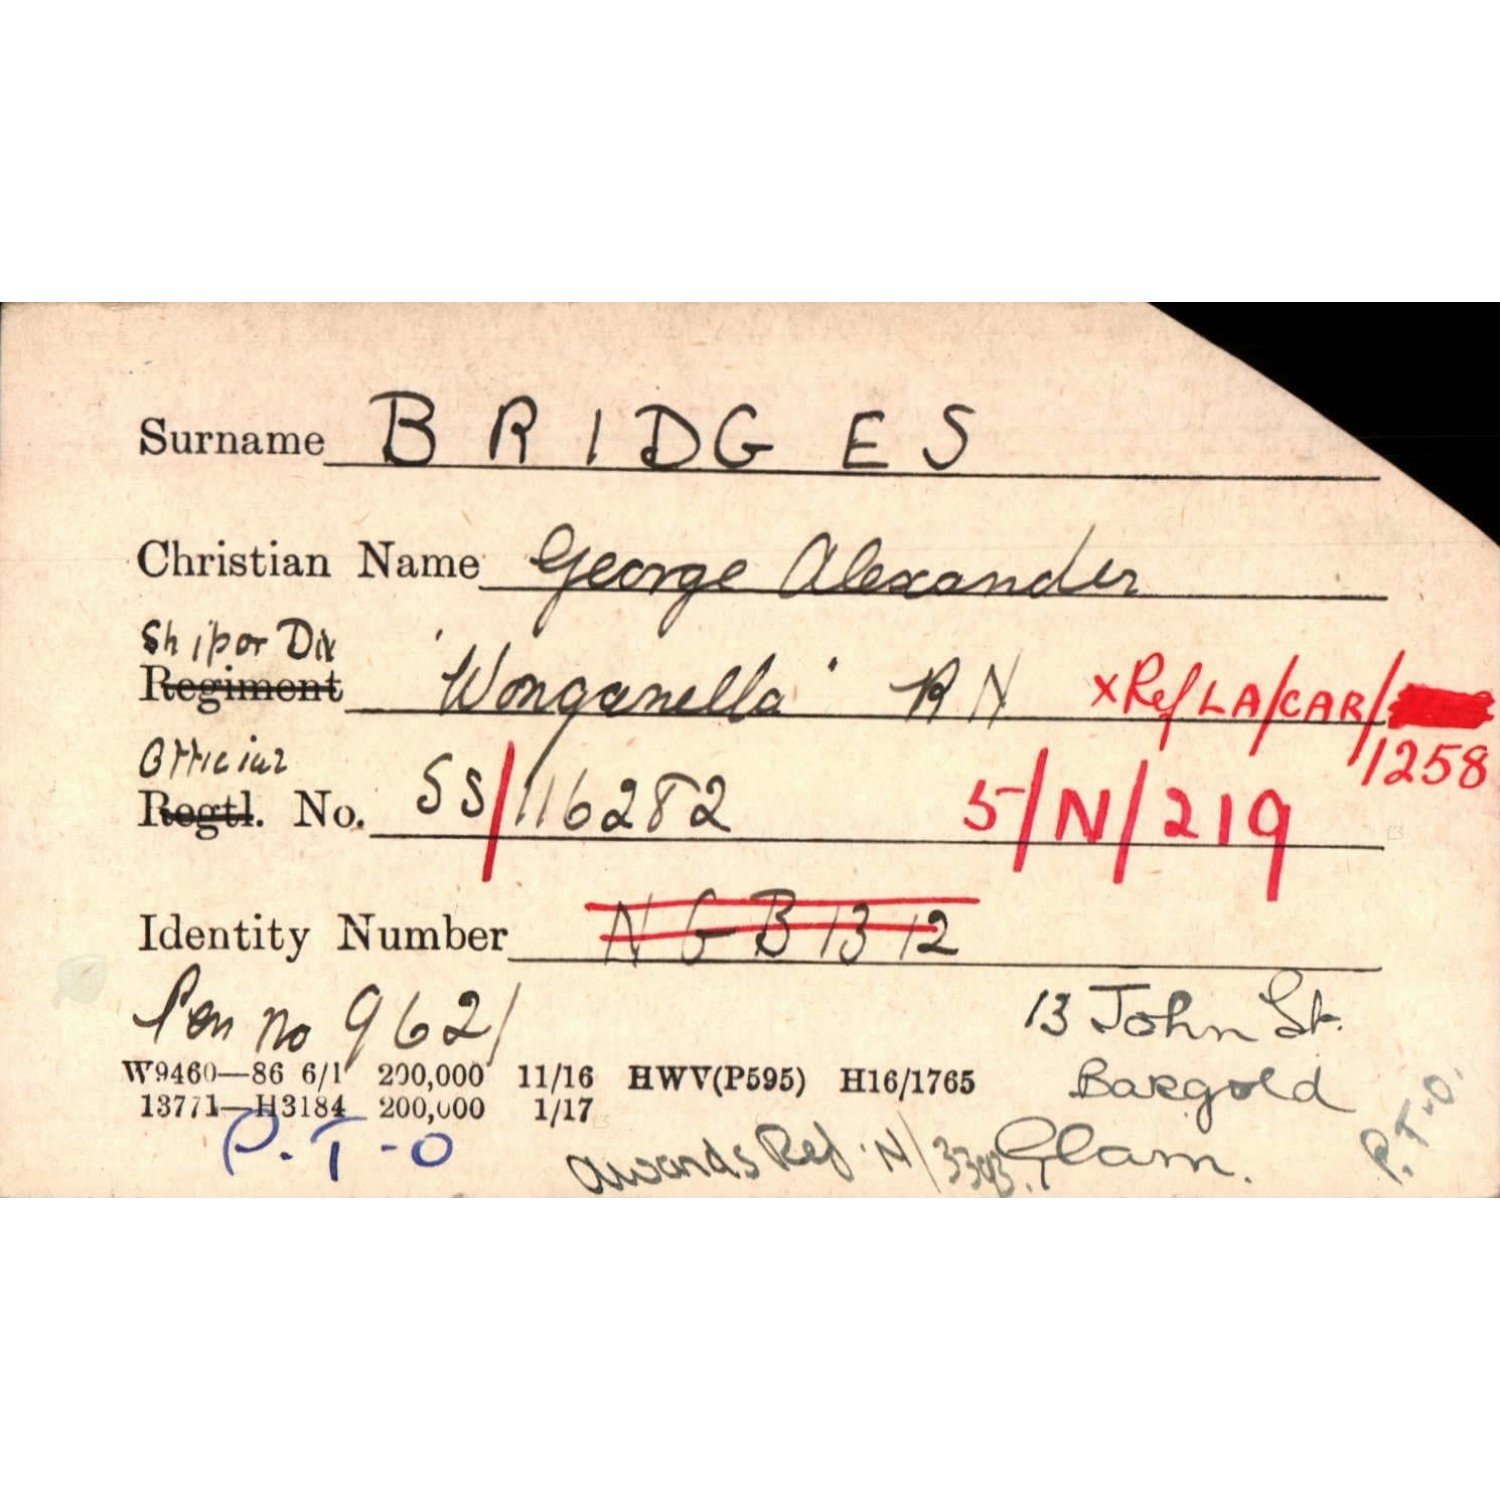 Surname BRIDGES
Christian Name George Alexander
Ship or Div
Regiment 'Wonganella' RN xRef LA/CAR/
/1258
Official
Regtl. No. SS/116282 5/N/219
Identity Number NGB 1312
Pen no 9621 13 John St.
W9460—86 6/1 200,000 11/16 HWV(P595) H16/1765
Bargold
13771—H3184 200,000 1/17
P.T-O Awards Ref N/ Glam. P.T-O.